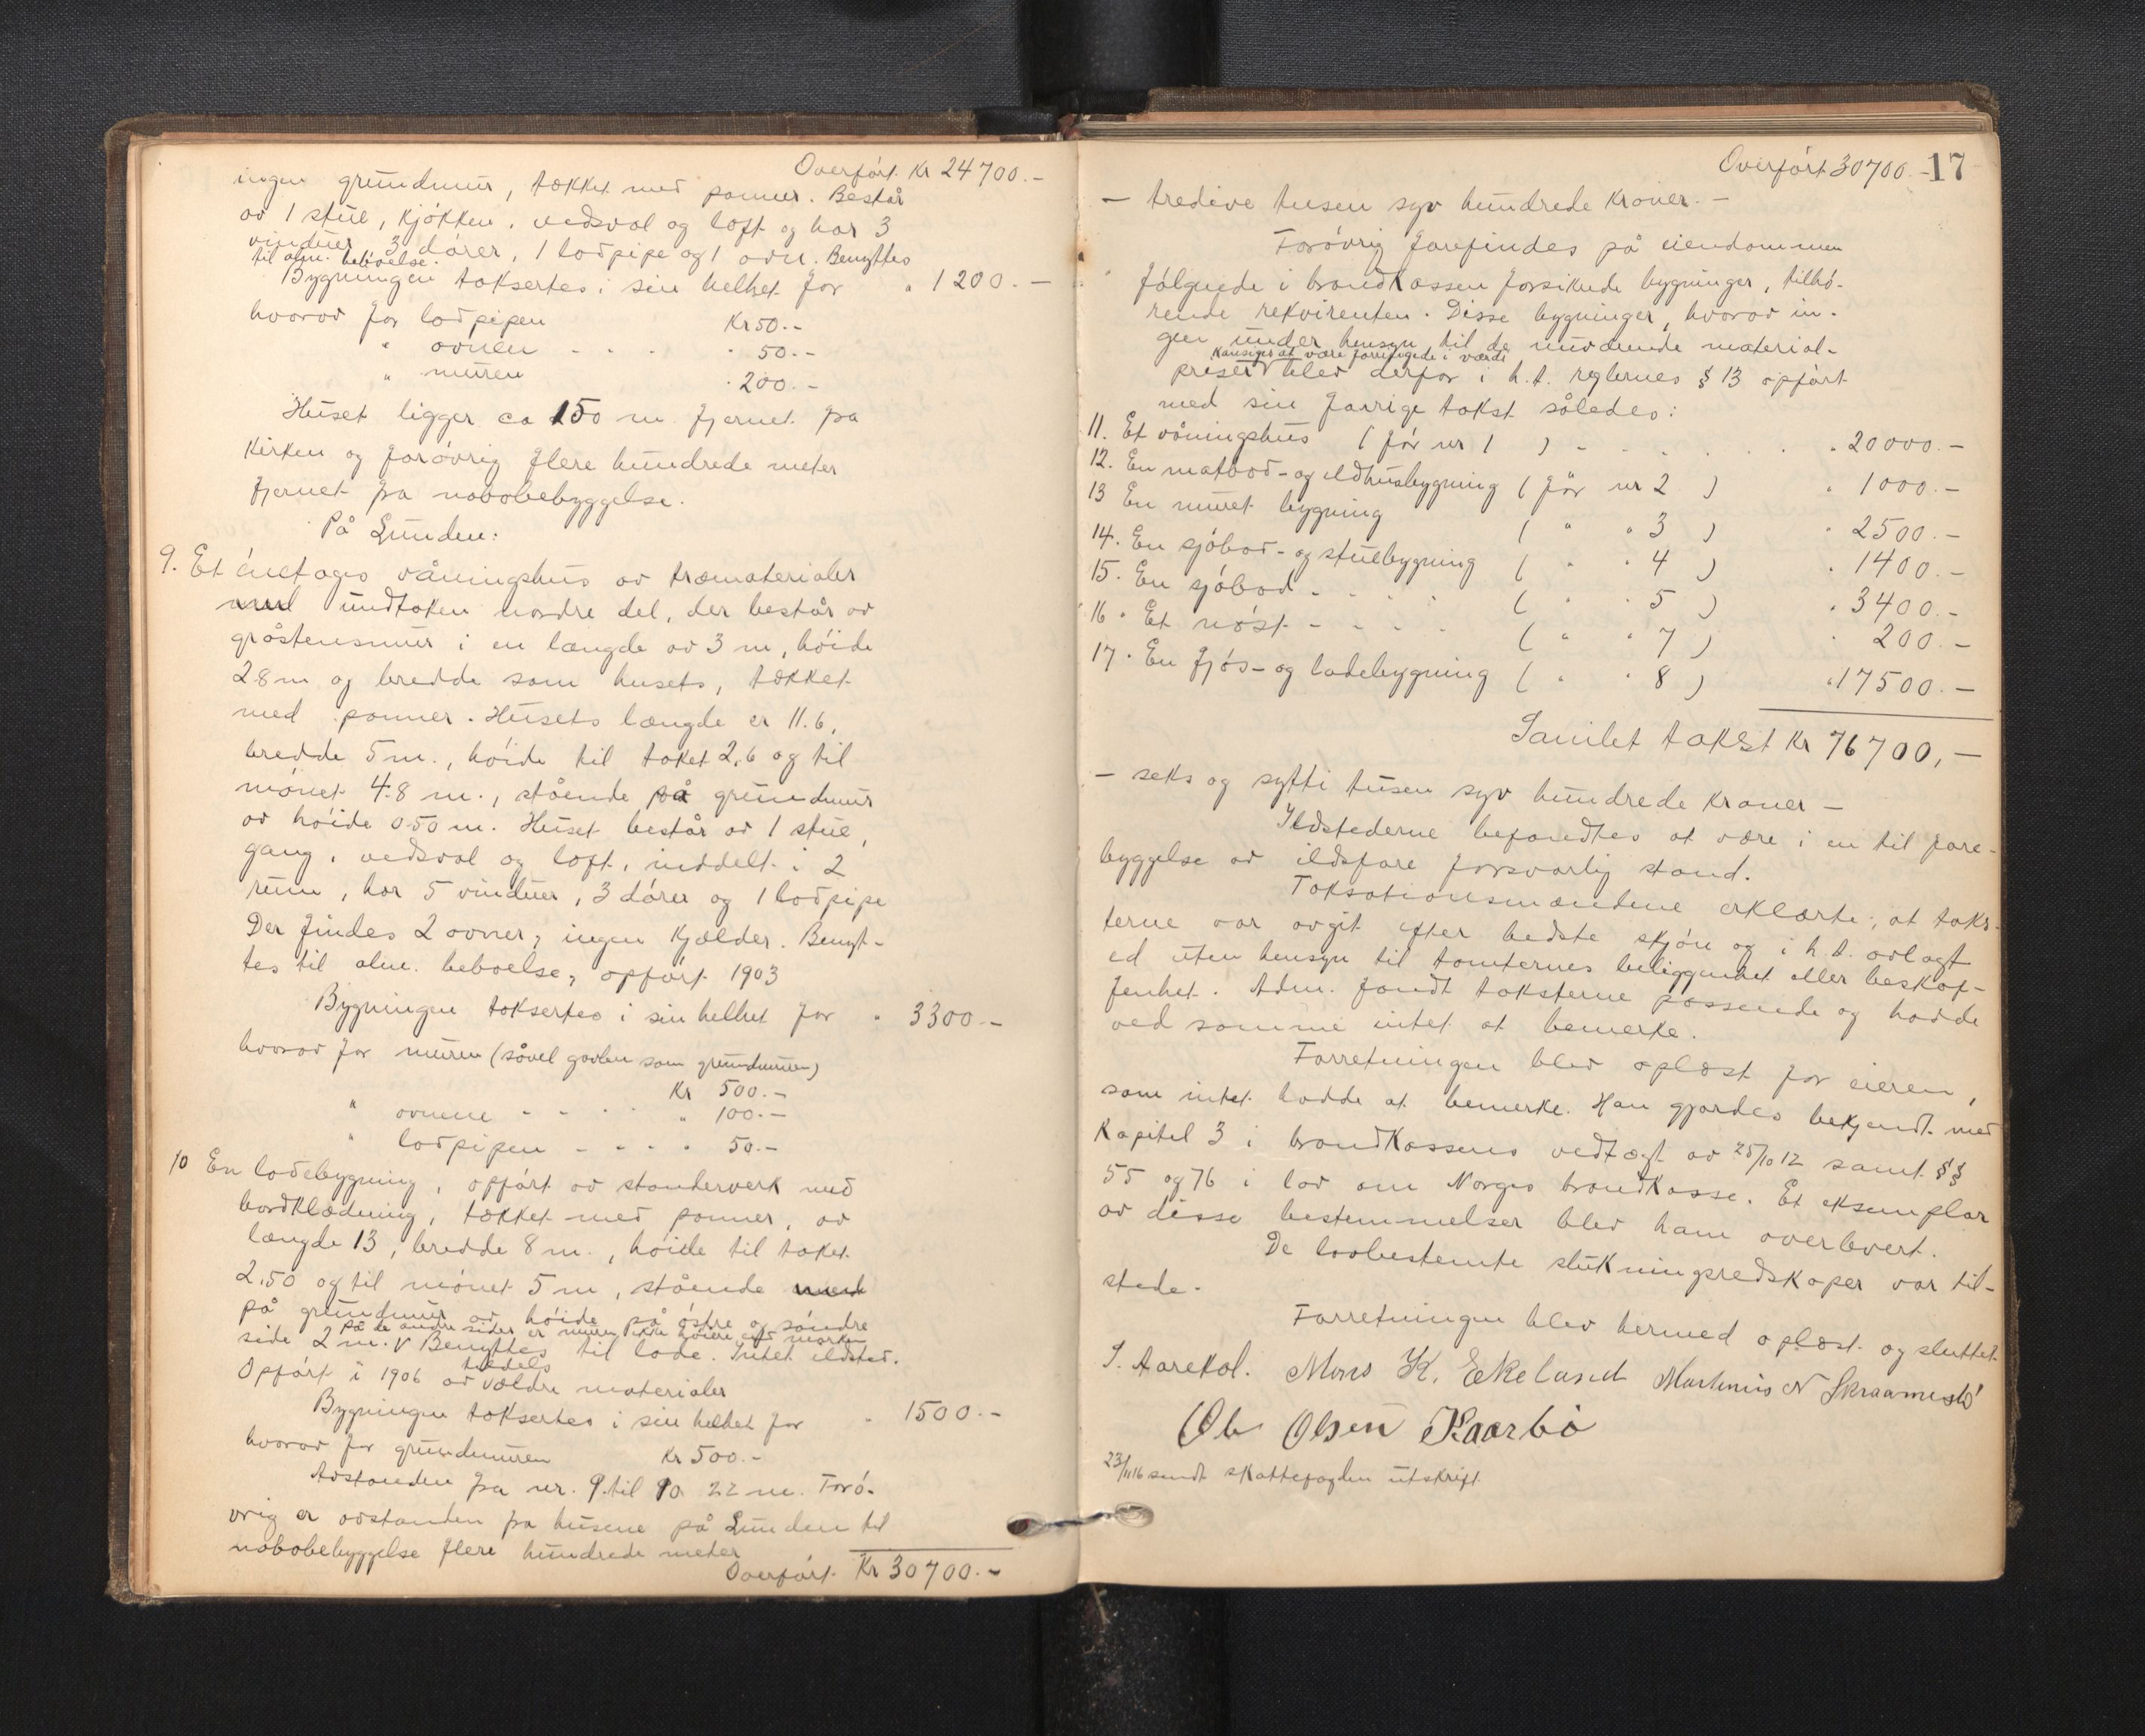 Overført Kr 24700.-
ingen grundmur, tækket med panner. Består
av 1 stue, kjøkken, vedsval og loft og har 3
vinduer, 3 dører, 1 lodpipe og 1 ovn. Benyttes
til alm. beboelse.
Bygningen taksertes i sin helhet for " 1200.-
hvorav for lodpipen Kr 50.-
" ovnen - - - " 50.-
" muren " 200.-
Huset ligger ca 150 m fjernet fra
Kirken og forøvrig flere hundrede meter
fjernet fra nabobebyggelse.
På Lunden:
9. Et énetages våningshus av træmaterialer
med undtaken nordre del, der består av
gråstensmur i en længde av 3 m, høide
2.8 m og bredde som husets, tækket
med panner. Husets længde er 11.6,
bredde 5 m., høide til taket 2.6 og til
mønet 4.8 m., stående på grundmur
av høide 0.50 m. Huset består av 1 stue,
gang, vedsval og loft, inddelt i 2
rum, har 5 vinduer, 3 dører og 1 lodpipe
Der findes 2 ovner, ingen kjælder. Benyt-
tes til alm. beboelse, opført 1903
Bygningen taksertes i sin helhet for " 3300.-
hvorav for muren (såvel gavlen som grundmuren)
Kr 500.-
" ovnene - - - " 100.-
" lodpipen - - - - 50.-
10 En ladebygning, opført av standerverk med
bordklædning, tækket med panner, av
længde 13, bredde 8 m., høide til taket
2.50 og til mønet 5 m, stående med
på grundmur av høide på østre og søndre
på de andre sider er muren ikke høiere end marken
side 2 m. V Benyttes til lade. Intet ildsted.
Opført i 1906 av tildels V ældre materialer
Bygningen taksertes i sin helhet for " 1500.-
hvorav for grundmuren Kr 500.-
Avstanden fra nr. 9 til 10 22 m. Forø-
vrig er avstanden fra husene på Lunden til
nabobebyggelse flere hundrede meter
Overført Kr 30700.-
Overført 30700.- 17
- tredive tusen syv hundrede kroner.-
Forøvrig forefindes på eiendommen
følgende i brandkassen forsikrede bygninger, tilhø-
rende rekvirenten. Disse bygninger, hvorav in-
gen under hensyn til de nuværende material-
kan siges at være foringede i værdi
priser V blev derfor i h.t. reglernes § 13 opført
med sin forrige takst således:
11. Et våningshus (før nr 1 ) - - - - - " 20000.-
12. En matbod- og ildhusbygning (før nr 2 ) " 1000.-
13 En muret bygning ( " " 3 ) " 2500.-
14. En sjøbod- og stuebygning ( " " 4 ) " 1400.-
15. En sjøbod - - - - ( " " 5 ) " 3400.-
16. Et nøst - - - - ( " " 7 ) " 200.-
17. En fjøs- og ladebygning ( " " 8 ) " 17500.-
Samlet takst Kr 76700,-
- seks og sytti tusen syv hundrede kroner -
Ildstederne befandtes at være i en til fore-
byggelse av ildsfare forsvarlig stand.
Taksationsmændene erklærte, at taks-
terne var avgit efter bedste skjøn og i h.t. avlagt
ed uten hensyn til tomternes beliggenhet eller beskaf-
fenhet. Adm. fandt taksterne passende og hadde
ved samme intet at bemerke.
Forretningen blev oplæst for eieren,
som intet hadde at bemerke. Han gjordes bekjendt med
Kapitel 3 i brandkassens vedtægt av 25/10 12 samt §§
55 og 76 i lov om Norges brandkasse. Et eksemplar
av disse bestemmelser blev ham overlevert.
De lovbestemte slukningsredskaper var til-
stede.
Forretningen blev hermed oplæst og sluttet
S. Aarekol. Mons K. Ekeland Martinus N Skraamestø
Ole Olsen Kaarbø
23/11 16 sendt skattefogden utskrift